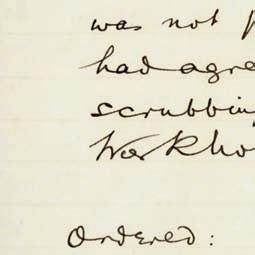 was not
had agre
scrubbin
Workho
Ordered: